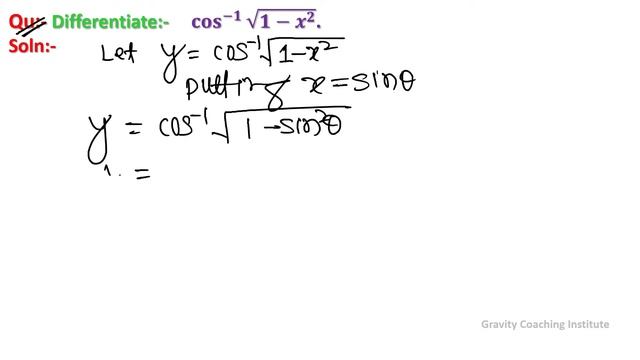 Qu:- Differentiate:- cos⁻¹ √(1 − x²).
Soln:- Let y = cos⁻¹√(1−x²)
putting x = sinθ
y = cos⁻¹ √(1 − sin²θ)
=
Gravity Coaching Institute